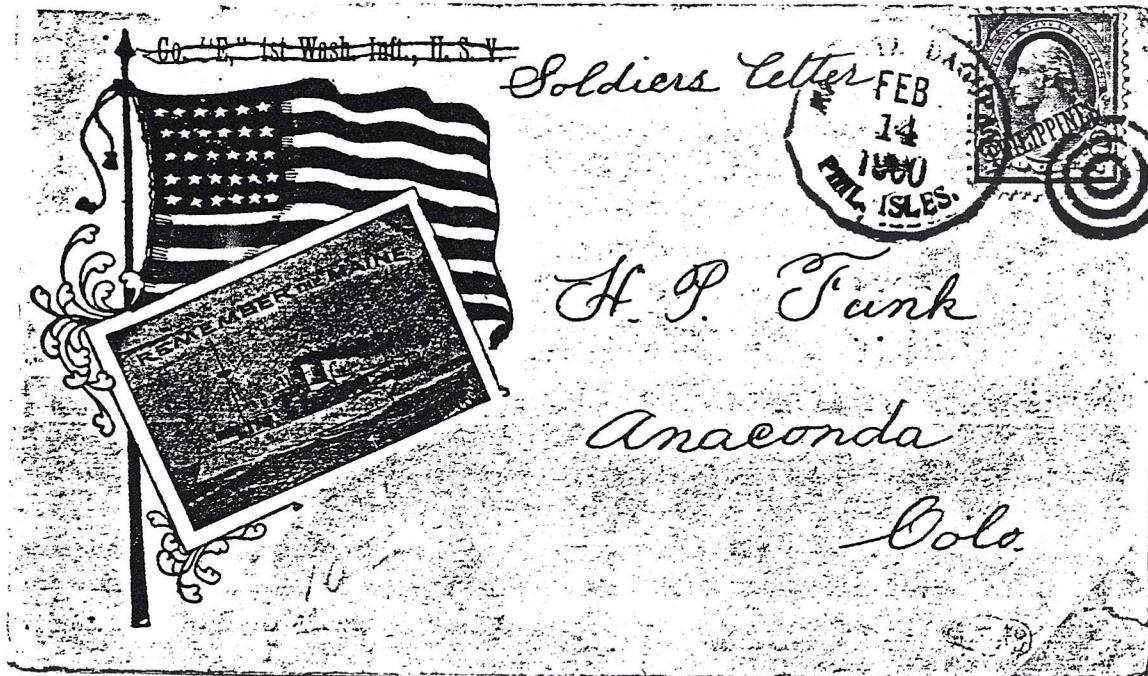 Co. "E," 1st Wash. Inft., U. S. V.
Soldiers letter
FEB
14
1900
PHIL. ISLES.
PHILIPPINES
REMEMBER THE MAINE
H. P. Funk
Anaconda
Colo.
10